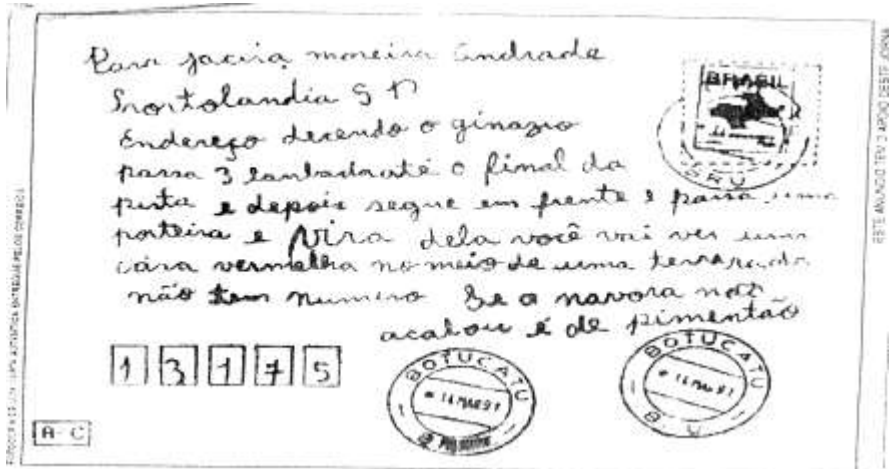 Para jacira moreira Andrade
Hortolandia S P
Endereço decendo o ginazio
passa 3 lanbadra até o final da
pista e depois segue em frente e passa uma
porteira e vira dela você vai ver uma
casa vermelha no meio de uma
não tem numero Se a navora não
acabou é de pimentão
BRASIL
BRU
13175
BOTUCATU
14 MAR 91
BOTUCATU
14 MAR 91
A-C
ESTE ANUNCIO TEM O APOIO DESTE JORNAL